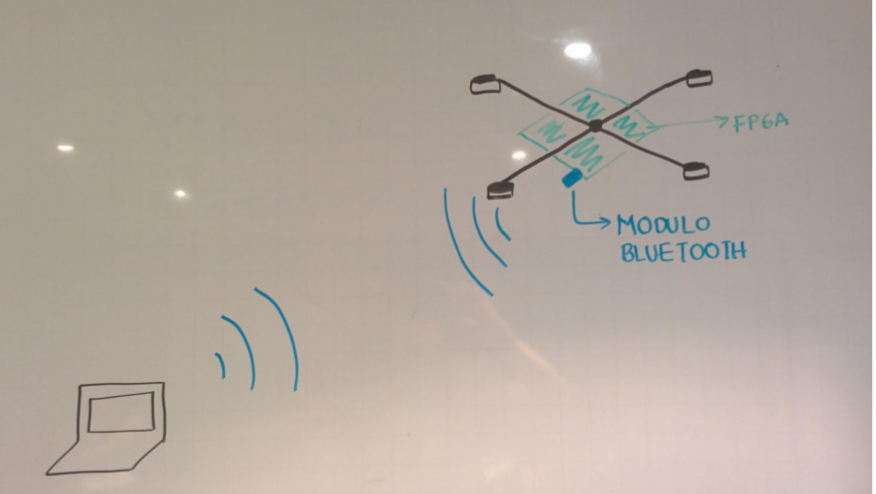 FPGA
MODULO
BLUETOOTH